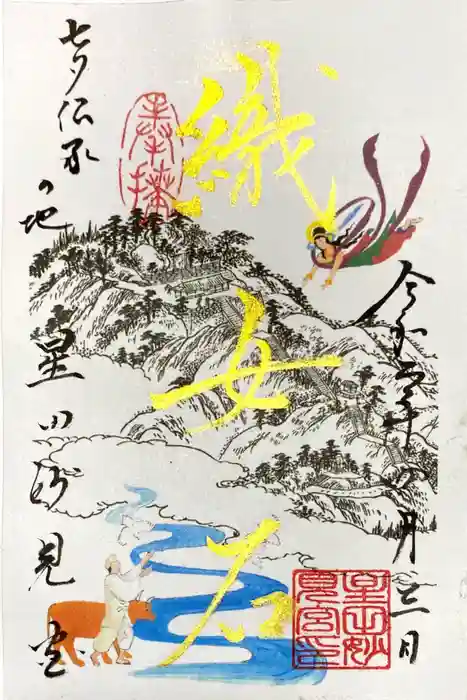 令和四年
月三日
奉拝
織女石
七夕伝承の地
星田妙見宮
星田妙見宮印